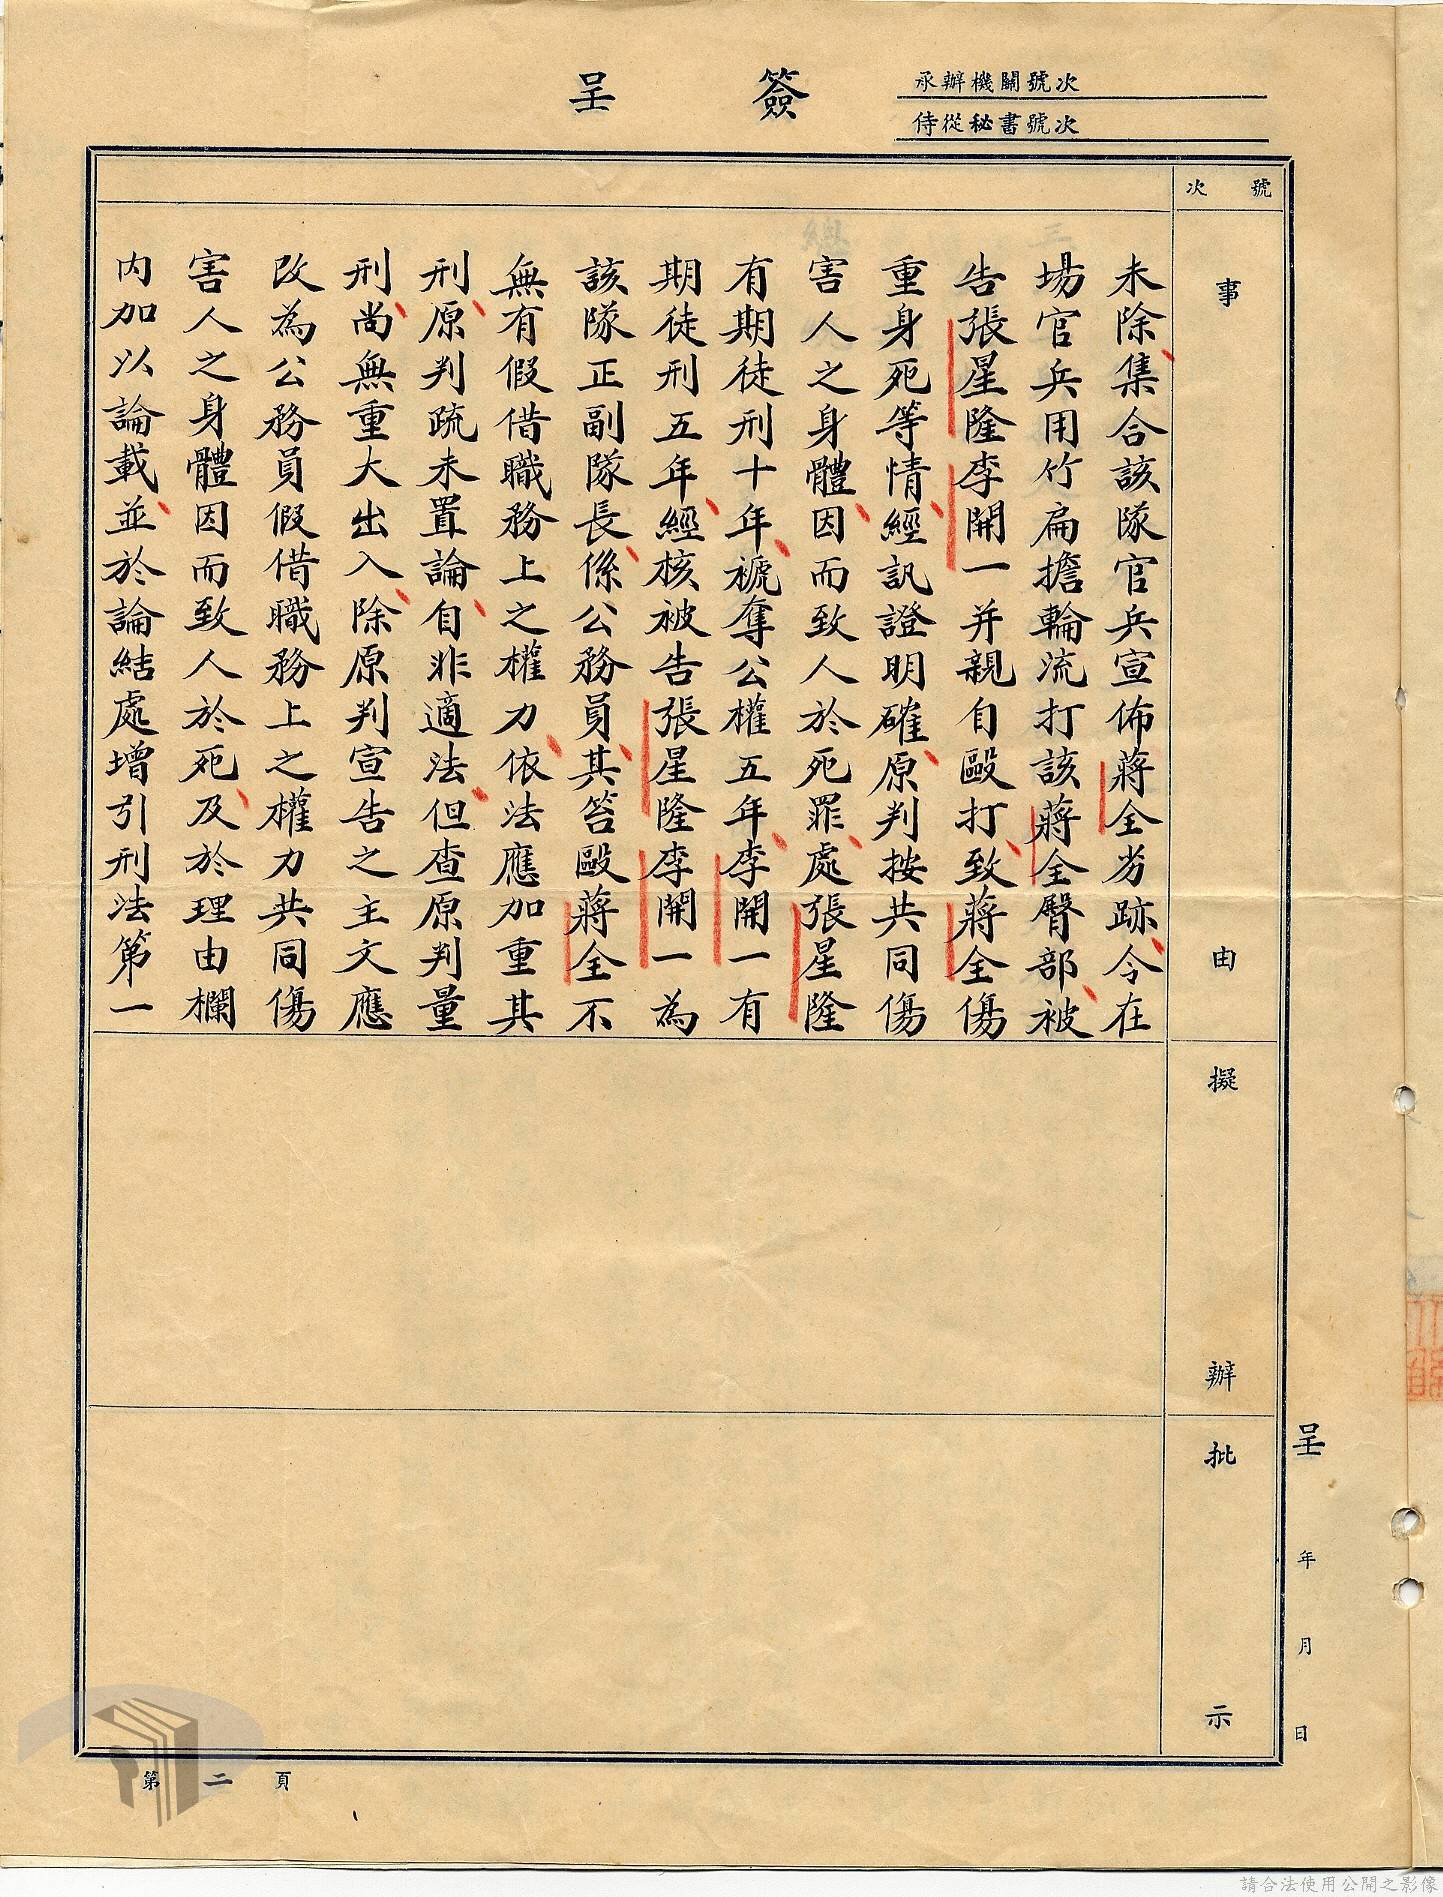 簽呈
承辦機關號次
侍從秘書號次
號次
事由
擬辦
批示
未除集合該隊官兵宣佈蔣全劣跡令在
場官兵用竹扁擔輪流打該蔣全臀部被
告張星隆李開一并親自毆打致蔣全傷
重身死等情經訊證明確原判按共同傷
害人之身體因而致人於死罪處張星隆
有期徒刑十年褫奪公權五年李開一有
期徒刑五年經核被告張星隆李開一為
該隊正副隊長係公務員其笞毆蔣全不
無有假借職務上之權力依法應加重其
刑原判疏未置論自非適法但查原判量
刑尚無重大出入除原判宣告之主文應
改為公務員假借職務上之權力共同傷
害人之身體因而致人於死及於理由欄
內加以論載並於論結處增引刑法第一
呈 年 月 日
第二頁
請合法使用公開之影像